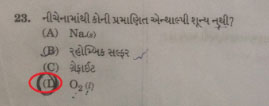 23. નીચેનામાંથી કોની પ્રમાણિત એન્થાલ્પી શૂન્ય નથી?
(A) Na(s)
(B) રહોમ્બિક સલ્ફર
(C) ગ્રેફાઈટ
(D) O₂(l)